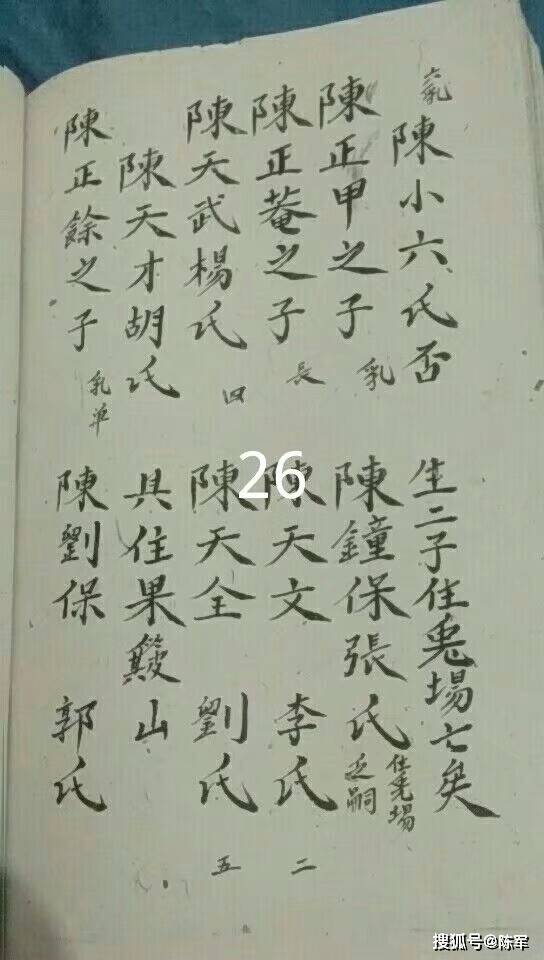 六乳 陳小六氏否 生二子住兎場亡矣
陳正甲之子 乳 陳鐘保張氏 住兎場乏嗣
陳正菴之子 長 陳天文 李氏 二
陳天武楊氏 四 陳天全 劉氏 五
陳天才胡氏 具住果 山
陳正餘之子 乳单 陳劉保 郭氏
26
搜狐号@陈军